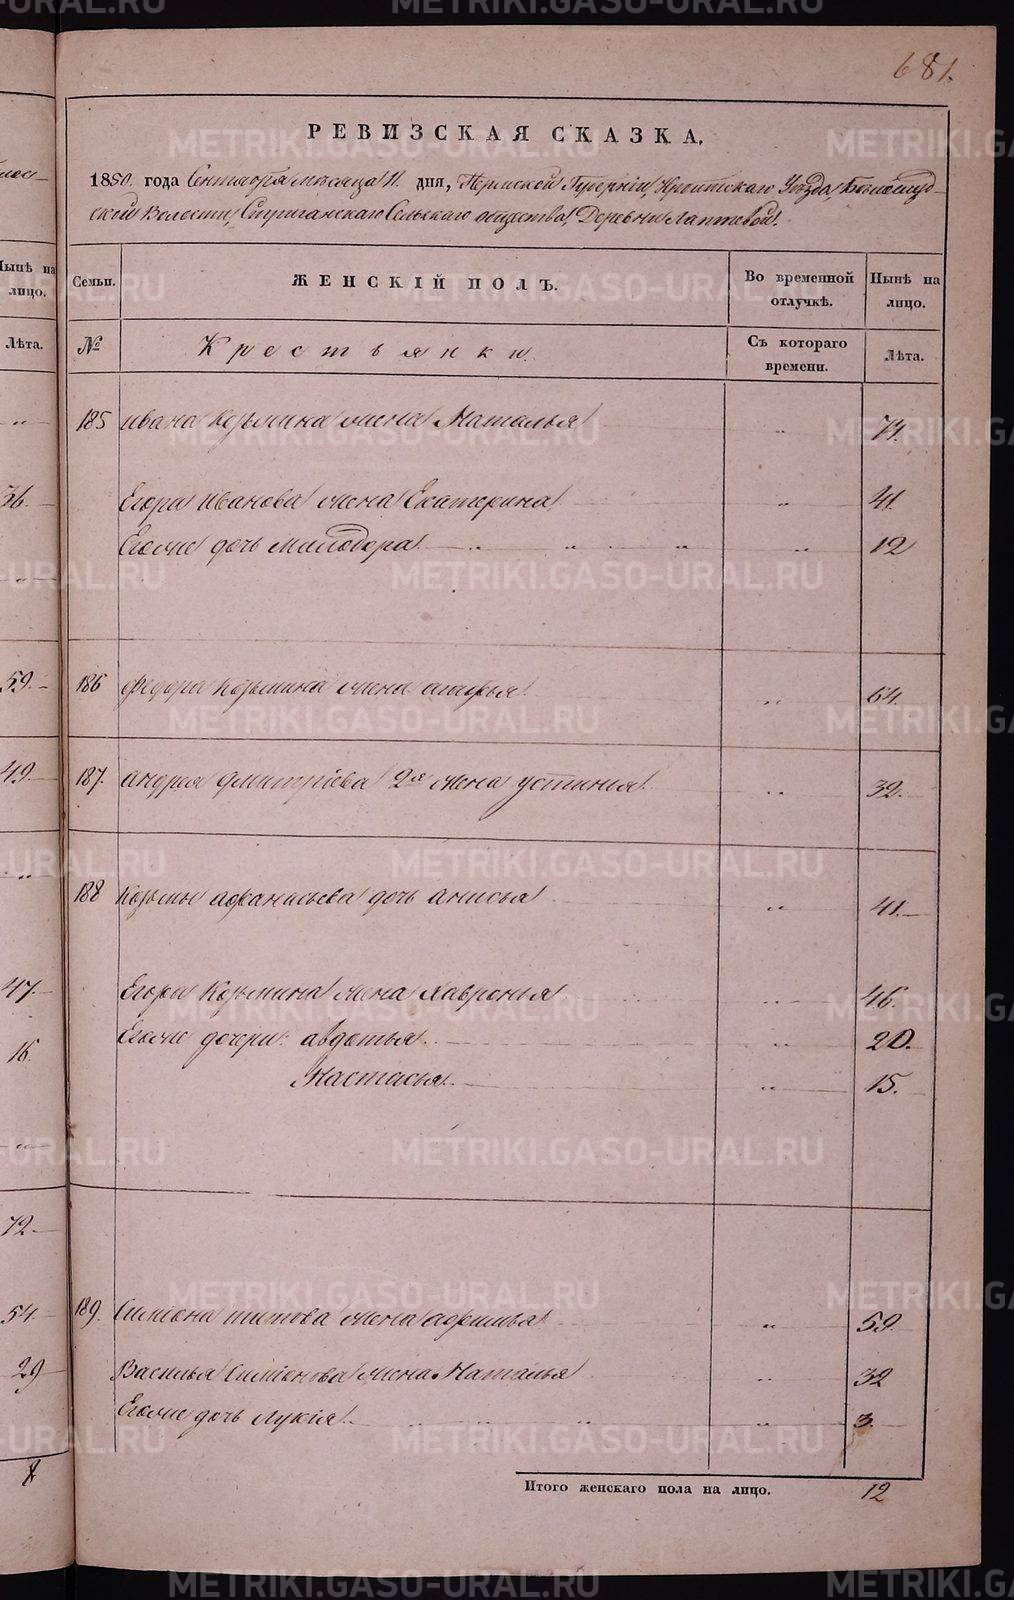 681.
РЕВИЗСКАЯ СКАЗКА.
1850. года Сентября месяца 11. дня, Пермской Губерніи, Ирбитскаго Уѣзда,
ской Волости, Стриганскаго Сельскаго общества, Деревни Лаптевой.
Нынѣ на лицо.
Семьи.
ЖЕНСКІЙ ПОЛЪ.
Во временной отлучкѣ.
Нынѣ на лицо.
Лѣта.
№
Крестьянки.
Съ котораго времени.
Лѣта.
185 ивана Козьмина жена Наталья " 71.
36. Егора Иванова жена Екатерина " 41.
Егоже дочь Милодора " 12
59. 186 федора Козьмина жена агафья " 64.
49. 187. андрея дмитріева 2я жена устинья " 32.
188 Козьмы афанасьева дочь анисья " 41.
47. Егора Козьмина жена хавронья " 46.
16. Егоже дочери: авдотья " 20.
Настасья " 15.
72.
54. 189. Симіона титова жена афимья " 59.
29 Василья Симіонова жена Наталья " 32
Егоже дочь Лукія " 3.
Итого женскаго пола на лицо. 12
METRIKI.GASO-URAL.RU